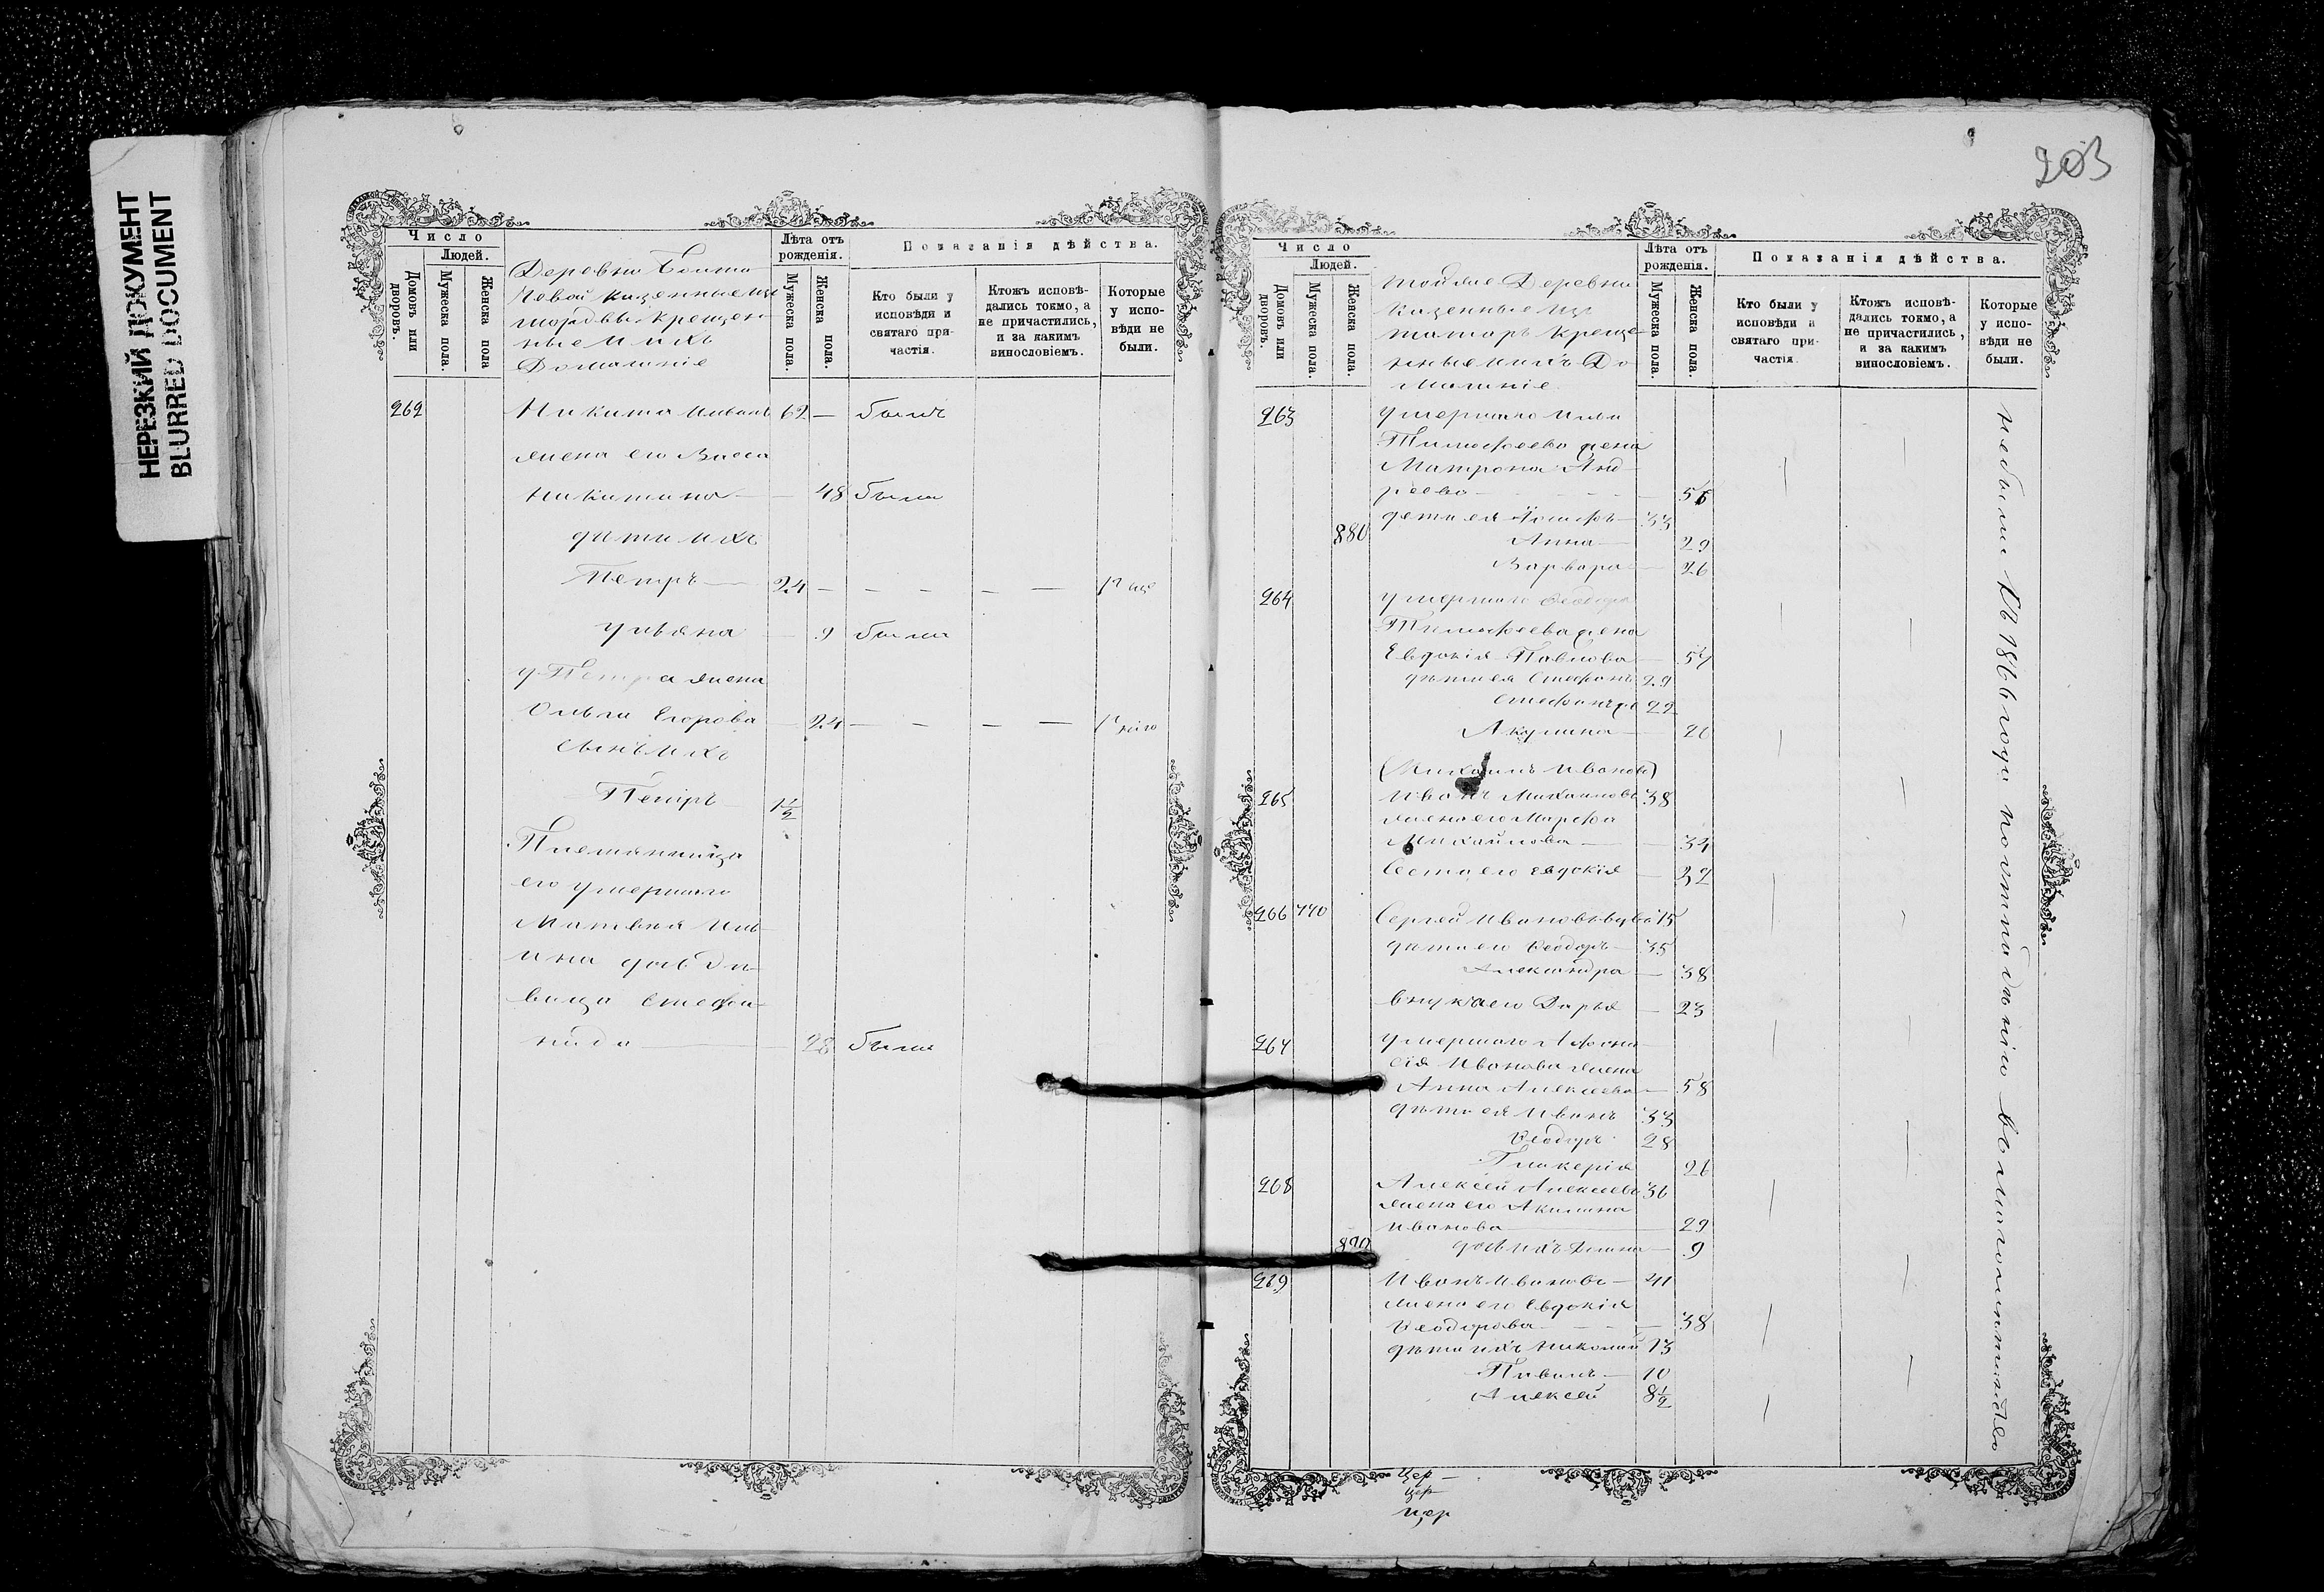 НЕРЕЗКИЙ ДОКУМЕНТ
BLURRED DOCUMENT
Число
Людей.
Домовъ или дворовъ.
Мужеска пола.
Женска пола
Деревни
Новой казенные изъ
мордвы крещен
ные и ихъ
Домашніе
Лѣта отъ рожденія.
Мужеска пола.
Женска пола.
Показанія дѣйства.
Кто были у исповѣди и святаго причастія.
Ктожъ исповѣдались токмо, а не причастились, и за какимъ винословіемъ.
Которые у исповѣди не были.
262 Никита 62 — былъ
жена его Васса
Никитина — — 48 была
дѣти ихъ
Петръ — 24 — — — — —
Ульяна — 9 была
у Петра жена
Ольга Егорова — 24 — — — —
сынъ ихъ
Петръ 1 1/2
Племянница
его умершаго
Матвѣя Иль
ина дочь дѣ
вица Стефа
нида — 28 была
203
Число
Людей.
Домовъ или дворовъ.
Мужеска пола.
Женска пола.
тойже Деревни
Казенные изъ
татаръ креще
нные и ихъ До
машніе
Лѣта отъ рожденія.
Мужеска пола.
Женска пола.
Показанія дѣйства.
Кто были у исповѣди и святаго причастія
Ктожъ исповѣдались токмо, а не причастились, и за какимъ винословіемъ.
Которые у исповѣди не были.
263 умершаго Ильи
Тимофеева жена
Матрона Анд
реева —
дети ея Іосифъ — 33
880 Анна — 29
Варвара — 26
264 умершаго Феодора
Тимофеева жена
Евдокія Павлова — 57
дѣти ея Стефанъ 29
22
Акулина — 20
(Михаилъ Ивановъ)
265 Иванъ Михаиловъ 38
жена его Марфа
Михайлова — — 34
Сестра его Евдокія — 32
266 770 Сергей Ивановъ вдовъ 75
дѣти его Феодоръ — 35
Александра — 38
внука его Дарья — 23
267 умершаго Афана
сія Иванова жена
Анна Алексеева — 58
дѣти ея Иванъ 33
Феодоръ 28
Гликерія 26
268 Алексей Алексеевъ 36
жена его Акилина
Иванова — 29
890 дочь ихъ — 9
269 Иванъ Ивановъ — 41
жена его Евдокія
Феодорова — — 38
дѣти ихъ Николай 13
Павелъ — 10
Алексей 8 1/2
небыли съ 1866 года по отпаденію въ магометанство
Цер —
цер —
цер